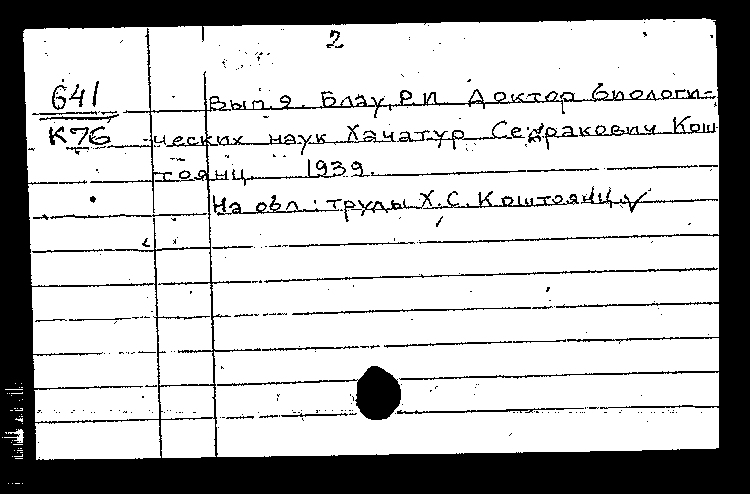 2
641
К76
Вып.9. Блау, Р.И. Доктор биологи=
ческих наук Хачатур Седракович Кош
тоянц. 1939.
На обл.: труды Х.С. Коштоянц.